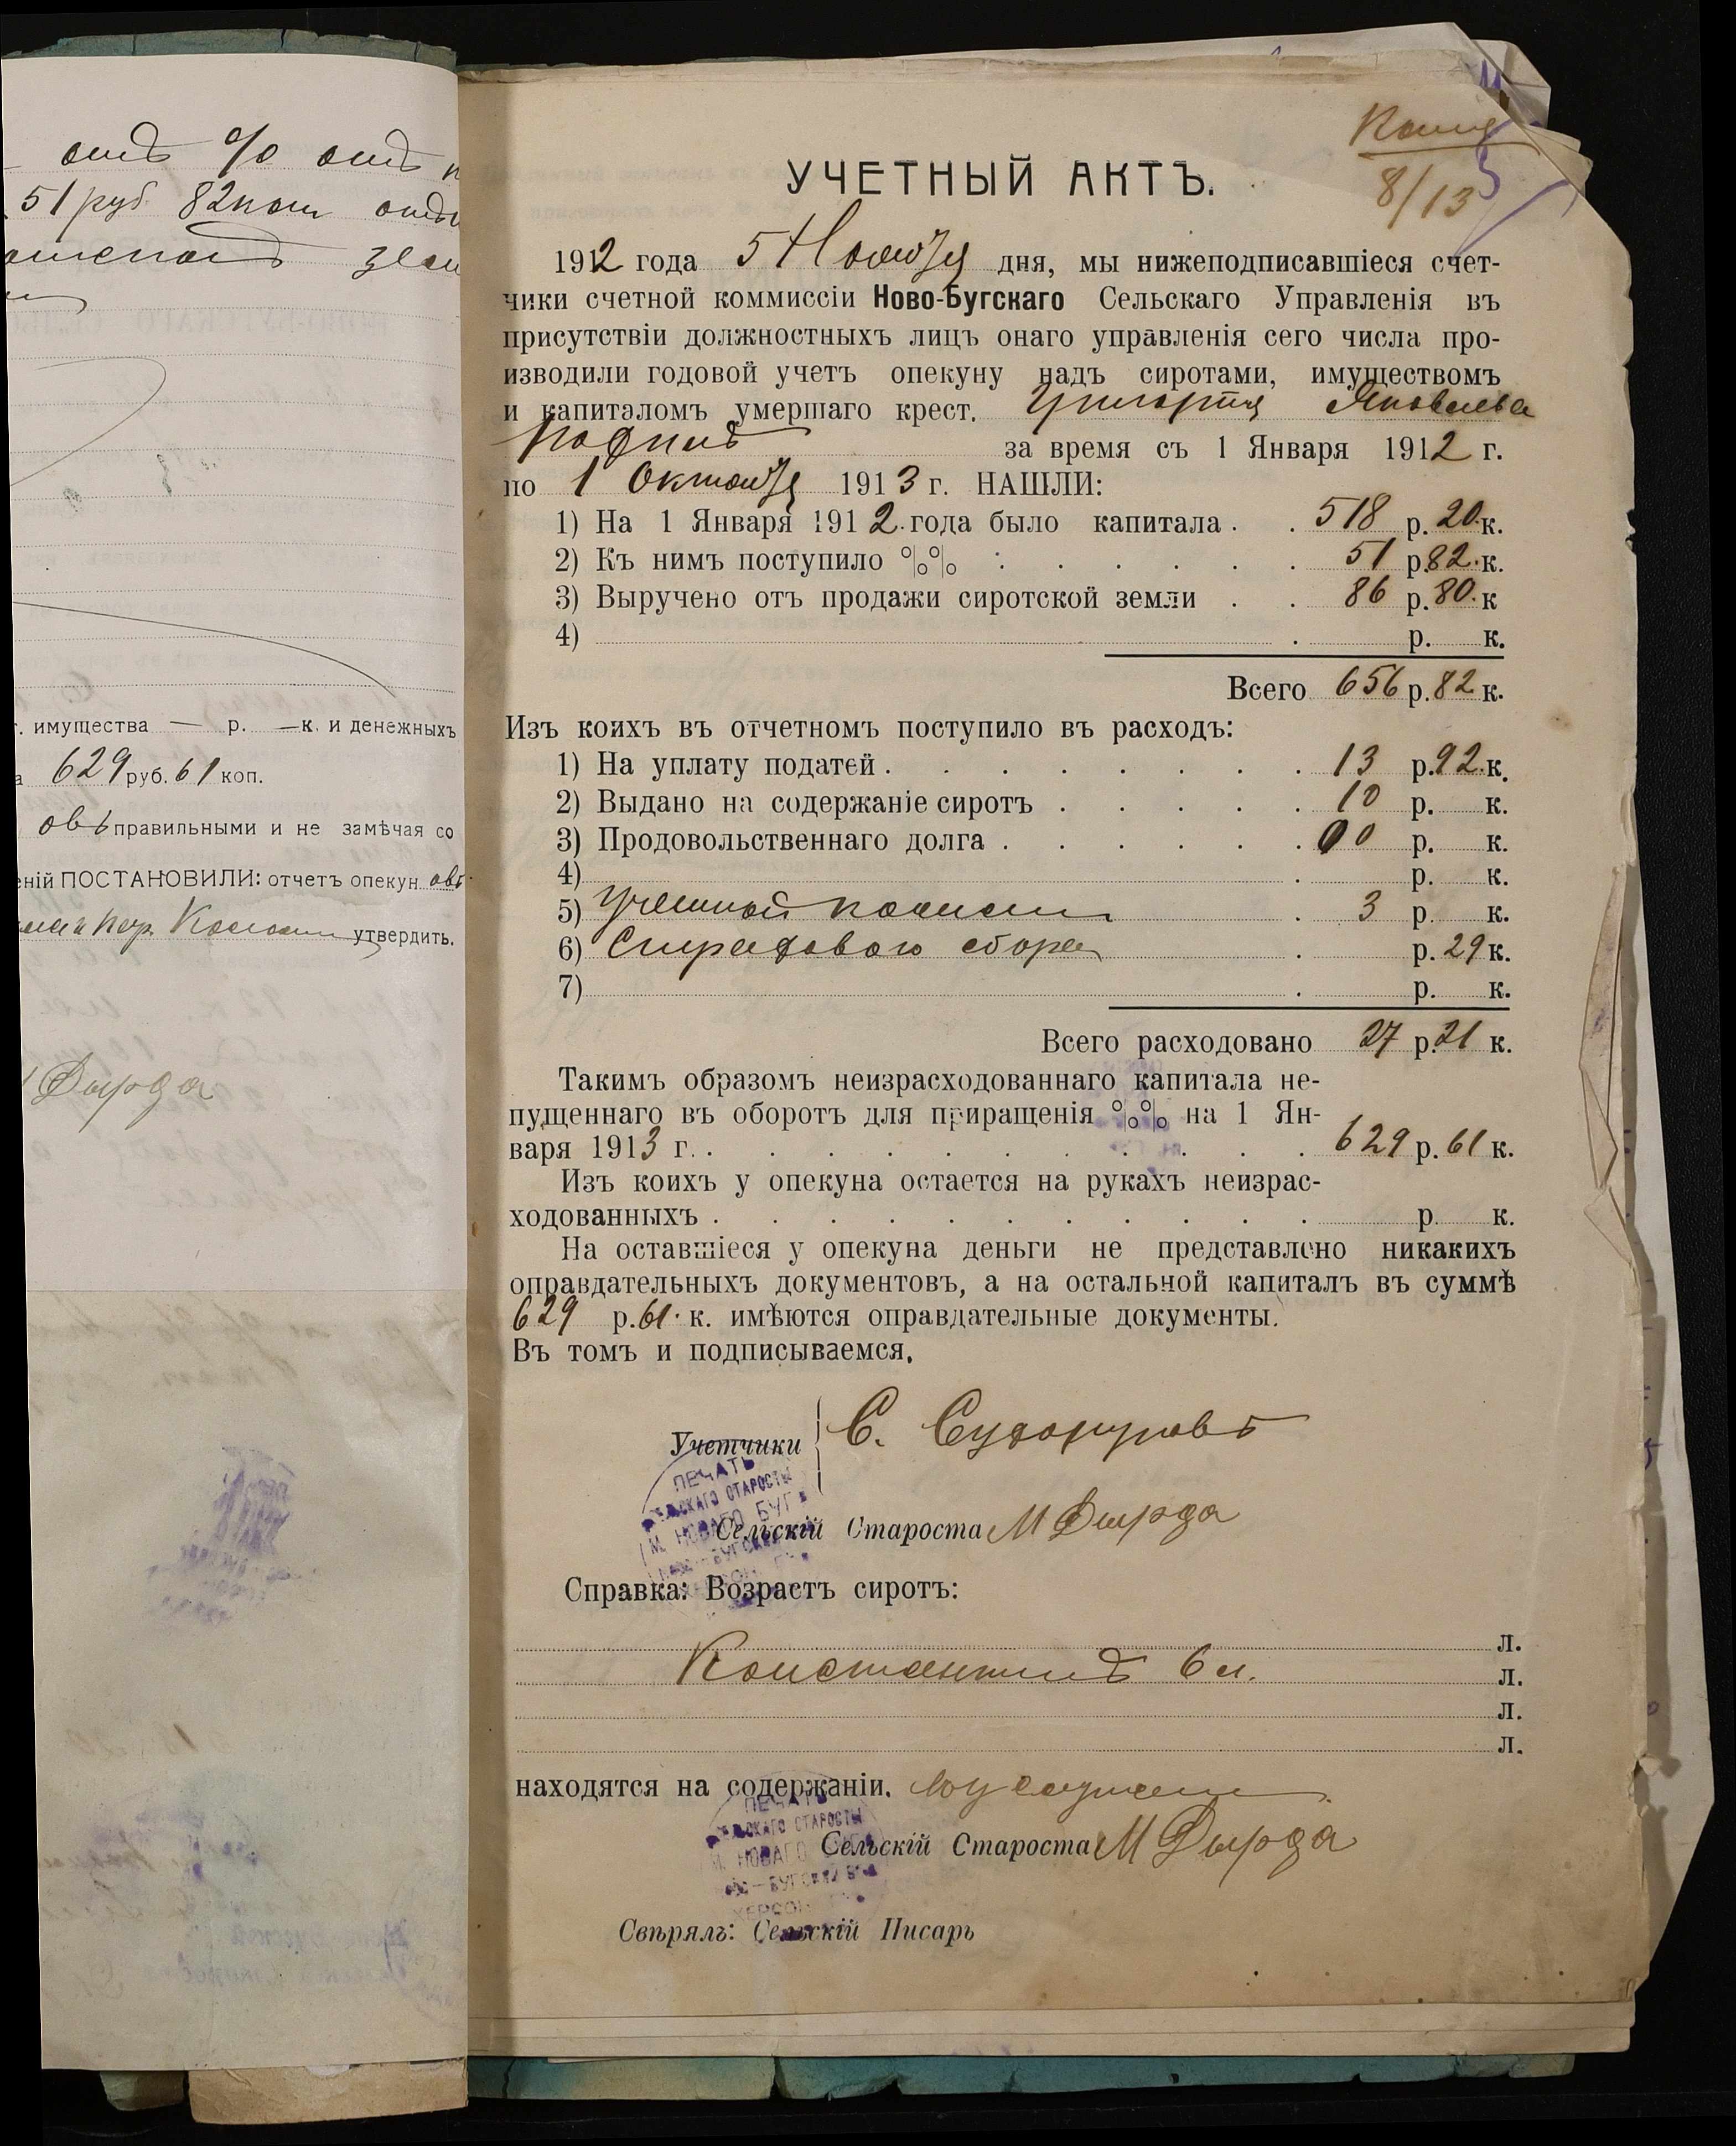 отъ % отъ
51 руб 82 коп
г. имущества — р. — к. и денежныхъ
629 руб. 61 коп.
овъ правильными и не замѣчая со
ній ПОСТАНОВИЛИ: отчетъ опекун овъ
утвердить.
Дырда
8/13
УЧЕТНЫЙ АКТЪ.
1912 года 5 Ноября дня, мы нижеподписавшіеся счет-
чики счетной коммиссіи Ново-Бугскаго Сельскаго Управленія въ
присутствіи должностныхъ лицъ онаго управленія сего числа про-
изводили годовой учетъ опекуну надъ сиротами, имуществомъ
и капиталомъ умершаго крест. Григорія Яковлева
за время съ 1 Января 1912 г.
по 1 Октября 1913 г. НАШЛИ:
1) На 1 Января 1912 года было капитала . . 518 р. 20 к.
2) Къ нимъ поступило %% . . . . . . 51 р. 82 к.
3) Выручено отъ продажи сиротской земли . . 86 р. 80 к
4) . р. к.
Всего 656 р. 82 к.
Изъ коихъ въ отчетномъ поступило въ расходъ:
1) На уплату податей . . . . . . . . 13 р. 92 к.
2) Выдано на содержаніе сиротъ . . . . . 10 р. к.
3) Продовольственнаго долга . . . . . . 00 р. к.
4) . р. к.
5) . 3 р. к.
6) Страховаго сбора . р. 29 к.
7) . р. к.
Всего расходовано 27 р. 21 к.
Такимъ образомъ неизрасходованнаго капитала не-
пущеннаго въ оборотъ для приращенія %% на 1 Ян-
варя 1913 г. . . . . . . . . . . . 629 р. 61 к.
Изъ коихъ у опекуна остается на рукахъ неизрас-
ходованныхъ . . . . . . . . . . . р. к.
На оставшіеся у опекуна деньги не представлено никакихъ
оправдательныхъ документовъ, а на остальной капиталъ въ суммѣ
629 р. 61 к. имѣются оправдательные документы.
Въ томъ и подписываемся.
Учетчики С.
ПЕЧАТЬ
СЕЛЬСКАГО СТАРОСТЫ
М. НОВАГО БУГА
Сельскій Староста М Дырда
Справка: Возрастъ сиротъ:
л.
Константинъ 6 л. л.
л.
л.
находятся на содержаніи.
ПЕЧАТЬ
СЕЛЬСКАГО СТАРОСТЫ
М. НОВАГО
Сельскій Староста М Дырда
ХЕРСОН
Свѣрялъ: Сельскій Писарь